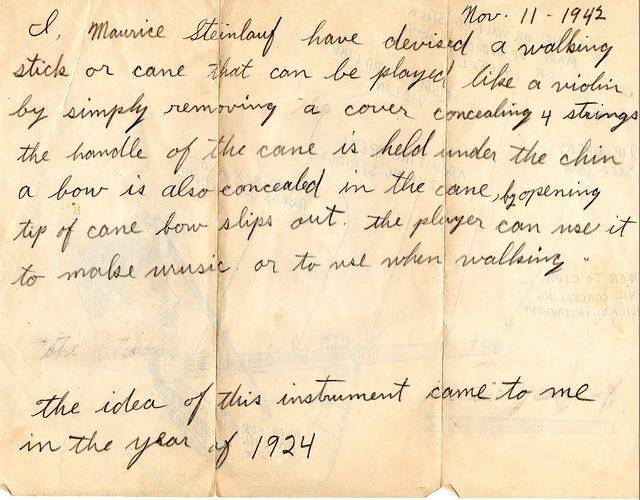 Nov. 11 - 1942
I, Maurice Steinlauf have devised a walking
stick or cane that can be played like a violin,
by simply removing a cover concealing 4 strings
the handle of the cane is held under the chin
a bow is also concealed in the cane, by opening
tip of cane bow slips out. the player can use it
to make music or to use when walking.
the idea of this instrument came to me
in the year of 1924